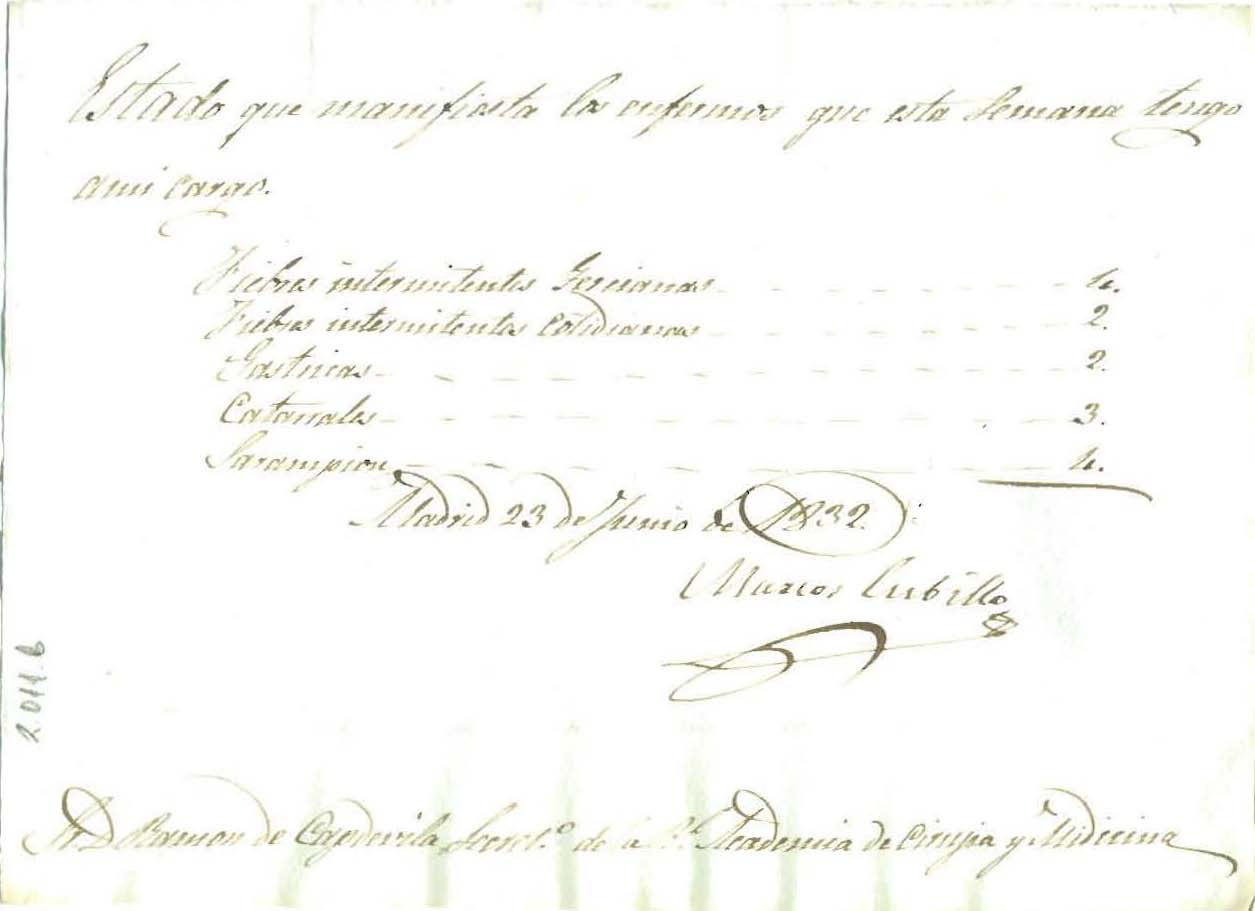 Estado que manifiesta los enfermos que esta Semana tengo
a mi cargo.
Fiebres intermitentes Tercianas 4.
Fiebres intermitentes cotidianas 2.
Gastricas 2.
Catarrales 3.
Sarampion 4.
Madrid 23 de Junio de 1832.
Marcos Cubillo
2.011.b
Sr. D Ramon de Capdevila Secret.º de la Rl. Academia de Cirujia y Medicina